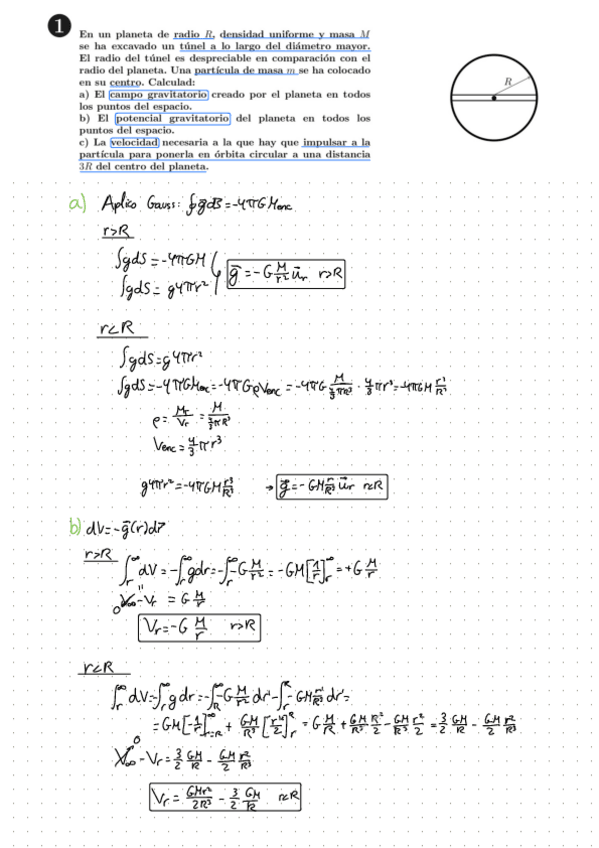 1
En un planeta de radio R, densidad uniforme y masa M
se ha excavado un túnel a lo largo del diámetro mayor.
El radio del túnel es despreciable en comparación con el
radio del planeta. Una partícula de masa m se ha colocado
en su centro. Calculad:
a) El campo gravitatorio creado por el planeta en todos
los puntos del espacio.
b) El potencial gravitatorio del planeta en todos los
puntos del espacio.
c) La velocidad necesaria a la que hay que impulsar a la
partícula para ponerla en órbita circular a una distancia
3R del centro del planeta.
R
a) Aplico Gauss: ∮g⃗dS⃗=-4πGMenc
r>R
∫gdS=-4πGM
∫gdS=g4πr²
g⃗=-G M/r² u⃗r r>R
r<R
∫gdS=g4πr²
∫gdS=-4πGMenc=-4πGρVenc=-4πG M/(4/3 πR³)·4/3 πr³=-4πGM r³/R³
ρ=MT/VT=M/(4/3 πR³)
Venc=4/3 πr³
g4πr²=-4πGM r³/R³ → g⃗=-GM r/R³ u⃗r r<R
b) dV=-g⃗(r)dr⃗
r>R
∫r^∞ dV=-∫r^∞ gdr=-∫r^∞ -G M/r²=-GM[1/r]r^∞=+G M/r
V∞-Vr=G M/r
0
Vr=-G M/r r>R
r<R
∫r^∞ dV=-∫r^∞ gdr=-∫R^∞ -G M/r² dr-∫r^R -GM r/R³ dr=
=GM[-1/r]r=R^∞+GM/R³[r²/2]r^R=G M/R+GM/R³ R²/2-GM/R³ r²/2=3/2 GM/R-GM/2 r²/R³
0
V∞-Vr=3/2 GM/R-GM/2 r²/R³
Vr=GMr²/2R³-3/2 GM/R r<R